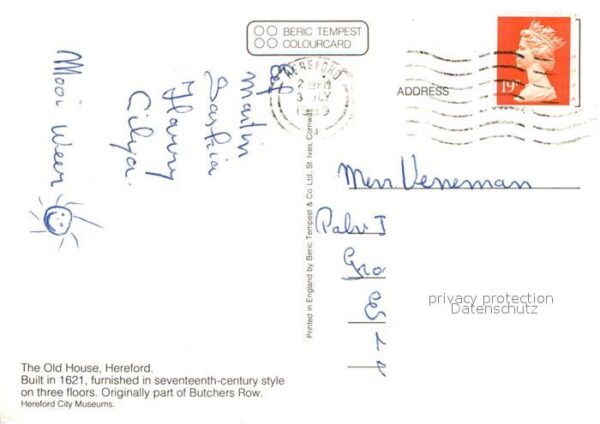 BERIC TEMPEST
COLOURCARD
Mooi Weer
Martin
Saskia
Harry
Cilya.
HEREFORD
19
ADDRESS
Mevr. Veneman
Printed in England by Beric Tempest & Co. Ltd., St. Ives, Cornwall
privacy protection
Datenschutz
The Old House, Hereford.
Built in 1621, furnished in seventeenth-century style
on three floors. Originally part of Butchers Row.
Hereford City Museums.